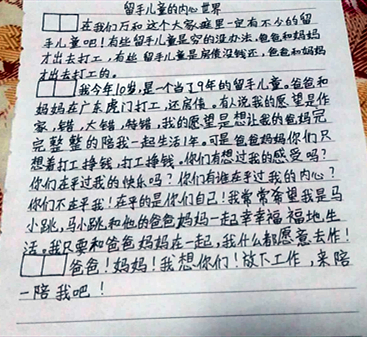 留手儿童的内心世界
在我们万和这个大家庭里一定有不少的留
手儿童吧!有些留手儿童是穷的没办法,爸爸和妈妈
才出去打工,有些留手儿童是房债没钱还,爸爸和妈妈
才出去打工的。
我今年10岁,是一个当了9年的留手儿童。爸爸和
妈妈在广东虎门打工,还房债。有人说我的愿望是作
家,错,大错,特错,我的愿望是想让我的爸妈完
完整整的陪我一起生活1年。可是爸爸妈妈你们只
想着打工挣钱,打工挣钱。你们有想过我的感受吗?
你们在乎过我的快乐吗?你们有谁在乎过我的内心?
你们不在乎我!在乎的是你们自己!我常常希望我是马
小跳,马小跳和他的爸爸妈妈一起幸幸福福地生
活。我只要和爸爸妈妈在一起,我什么都愿意去作!
爸爸!妈妈!我想你们!放下工作,来陪
一陪我吧!